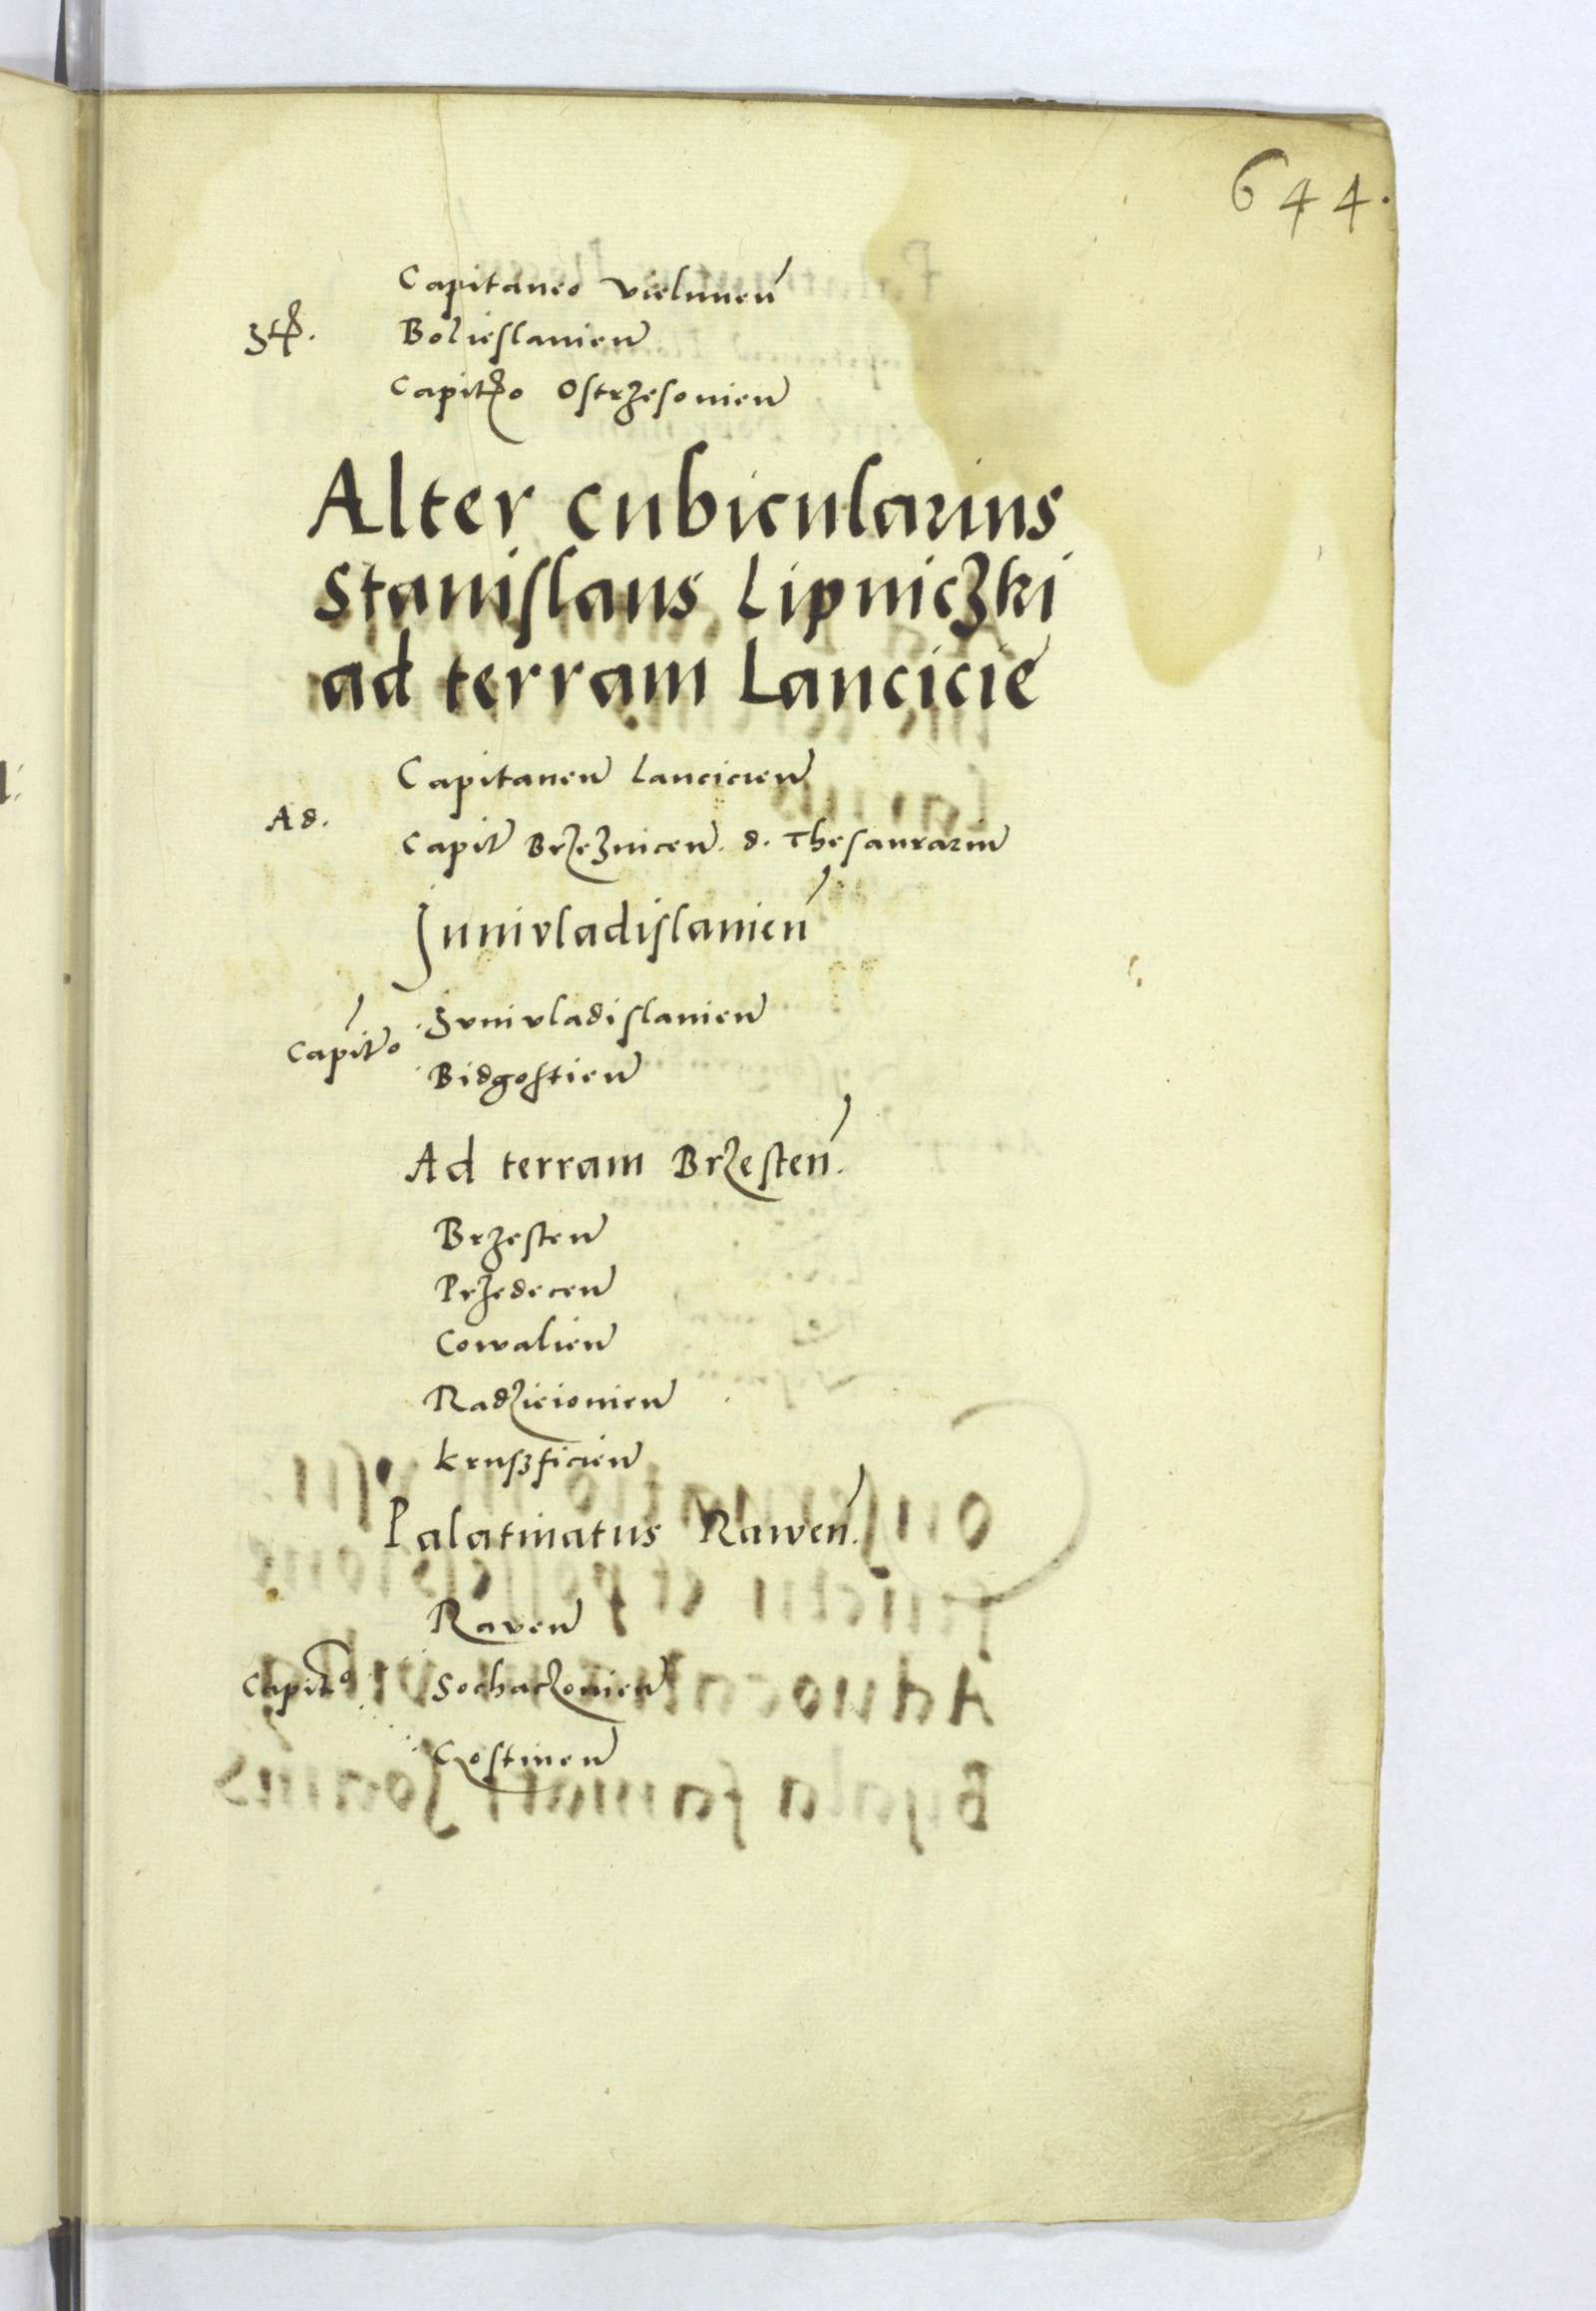 644.
Capitaneo Vielunen
Bolieslauien
Capito Ostrzesouien
Alter cubicularius
Stanislaus Lipniczki
ad terram Lancicie
Capitaneu Lancicien
Ad.
Capit Brzeznicen. d. Thesaurariu
Junivladislauien
Junivladislauien
Capito
Bidgostien
Ad terram Brzesten.
Brzesten
Przedecen
Cowalien
Radzieiouien
Kruszficien
Palatinatus Rawen.
Raven
Capito Sochaczouien
Gostinen